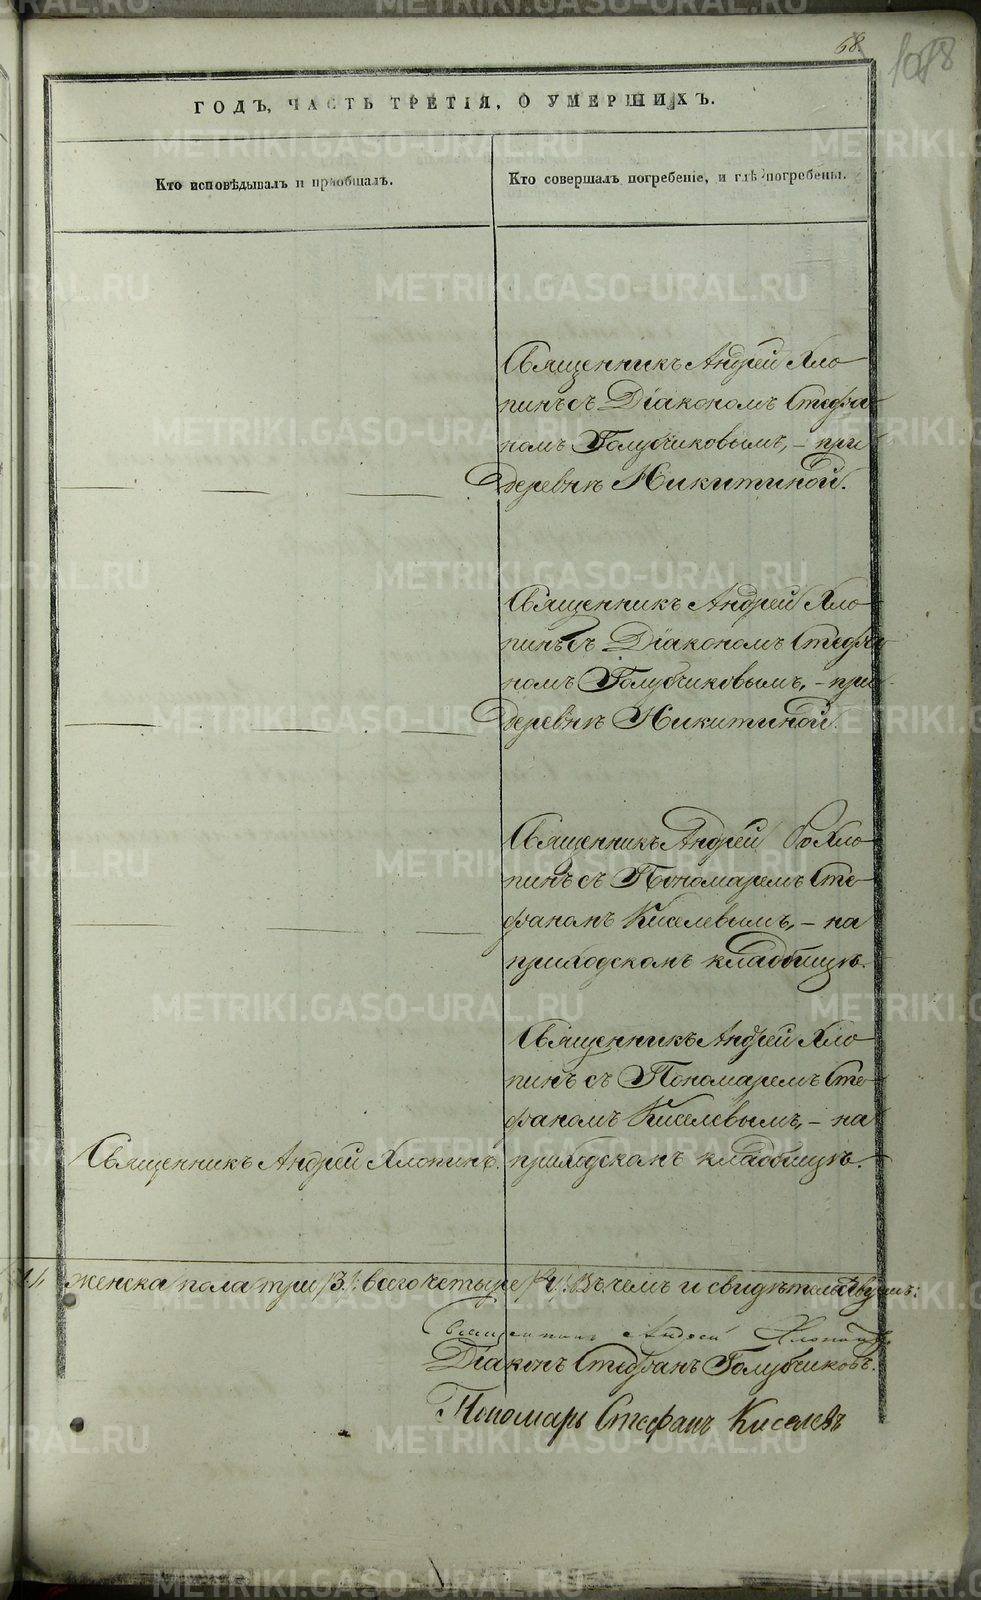 68.
ГОДЪ, ЧАСТЬ ТРЕТІЯ, О УМЕРШИХЪ.
Кто исповѣдывалъ и пріобщалъ.
Кто совершалъ погребеніе, и гдѣ погребены.
Священникъ Андрей Хло
пинъ съ Діакономъ Стефа
номъ Голубчиковымъ, – при
деревнѣ Никитиной.
Священникъ Андрей Хло
пинъ съ Діакономъ Стефа
номъ Голубчиковымъ, – при
деревнѣ Никитиной.
Священникъ Андрей Хло
пинъ съ Пономаремъ Сте
фаномъ Киселевымъ, – на
приходскомъ кладбищѣ.
Священникъ Андрей Хло
пинъ съ Пономаремъ Сте
фаномъ Киселевымъ, – на
Священникъ Андрей Хлопинъ. приходскомъ кладбищѣ.
женска пола три /3/. всего четыре /4/. Въ чемъ и свидѣтельствуемъ:
Священникъ Андрей Хлопинъ
Діаконъ Стефанъ Голубчиковъ.
Пономарь Стефанъ Киселевъ
METRIKI.GASO-URAL.RU